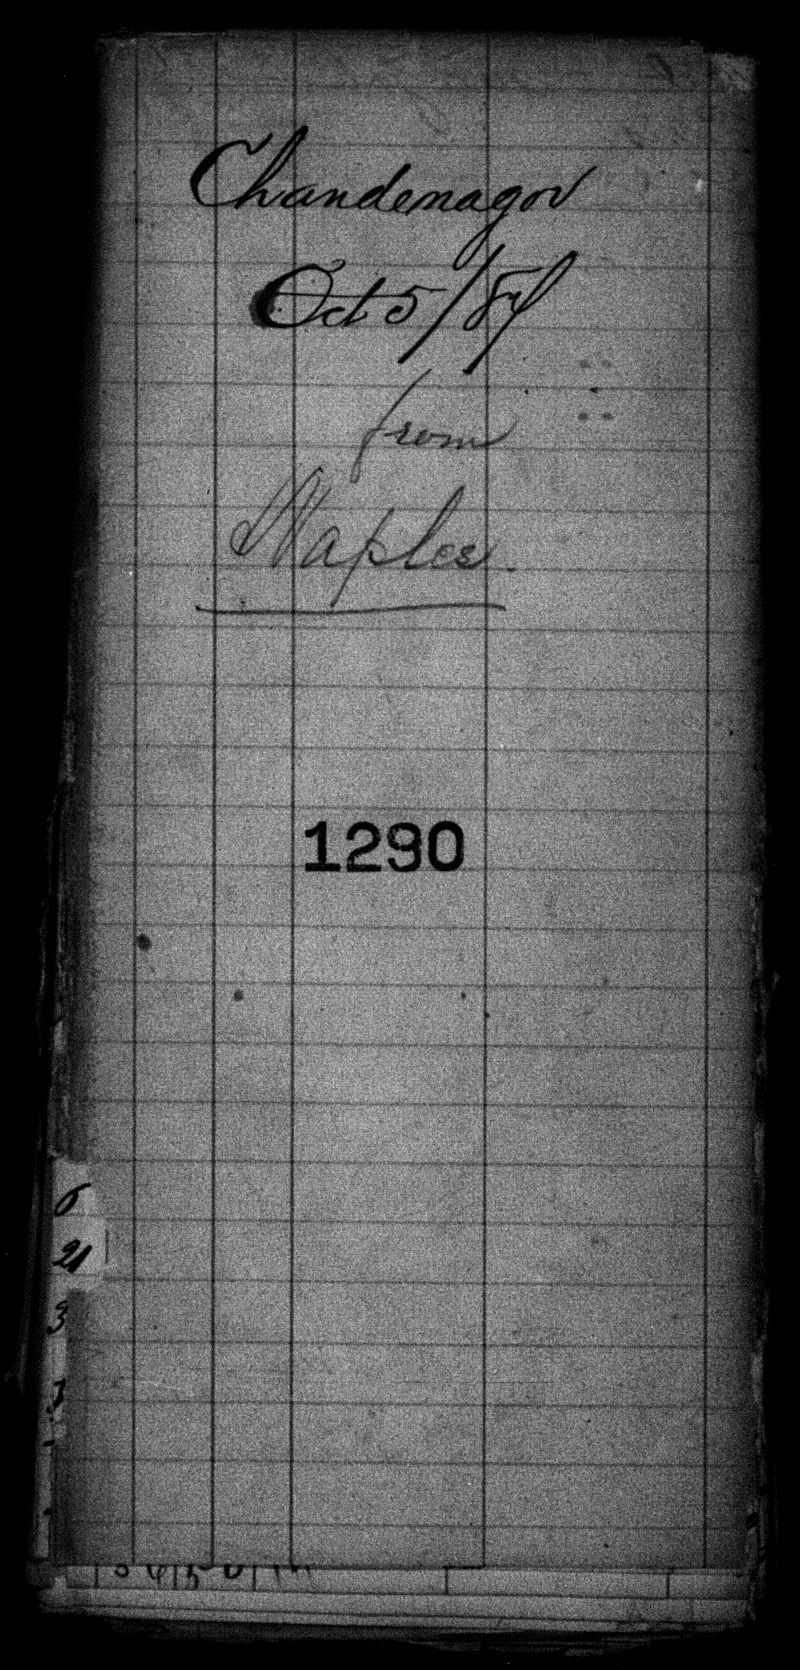 Chandenagor
Oct 5/87
from
Naples.
1290
6
21
3